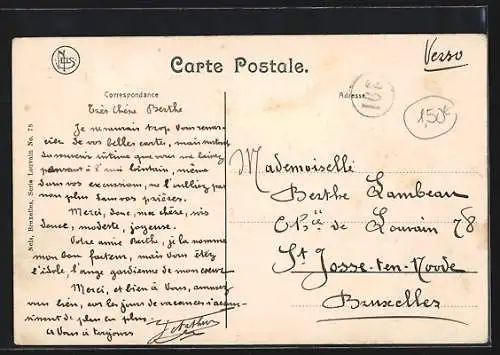 Verso
Carte Postale.
Correspondance
Adresse
1,50€
Nels, Bruxelles, Serie Louvain No. 78
Très Chère Berthe
Je ne saurais trop vous remercier de vos belles cartes, mais surtout
du souvenir intime que vous ne
pensant à l'ami lointain, même
dans vos excursions, ne l'oubliez pas
non plus dans vos prières.
Merci, donc, ma chère, vis
douce, modeste, joyeuse.
Votre amie Berthe, je la nomme
mon bon facteur, mais vous êtes
l'idole, l'ange gardienne de mon coeur
Merci, et bien à Vous, amusez
vous bien, car les jours de vacances
de plus en plus.
à Vous à toujours
Mademoiselle
Berthe Lambeau
Chée de Louvain 78
St Josse-ten-Noode
Bruxelles